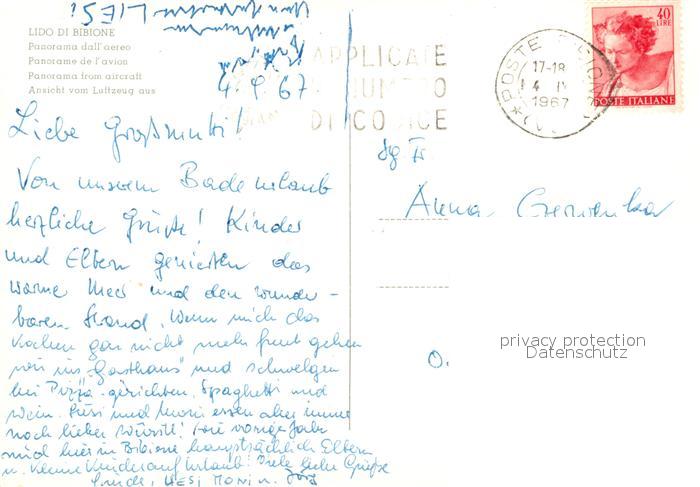 LIDO DI BIBIONE
Panorama dall'aereo
Panorame de l'avion
Panorama from aircraft
Ansicht vom Luftzeug aus
4. 9. 67
APPLICATE
NUMERO
DI CODICE
POSTE
17-18
4
1967
40
LIRE
POSTE ITALIANE
Liebe Großmutti!
Von unserem Badeurlaub
herzliche Grüße! Kinder
und Eltern genießen das
warme Meer und den wunder-
baren Strand. Wenn mich das
Kochen gar nicht mehr freut gehen
wir ins "Gasthaus" und schwelgen
bei Pizza-gerichten, Spaghetti und
Wein. und essen aber immer
noch lieber Würstl! Wie voriges Jahr
sind hier in Bibione hauptsächlich Eltern
u. kleine Kinder auf Urlaub! Viele liebe Grüße
Moni u. Jörg
Anna
O.
privacy protection
Datenschutz